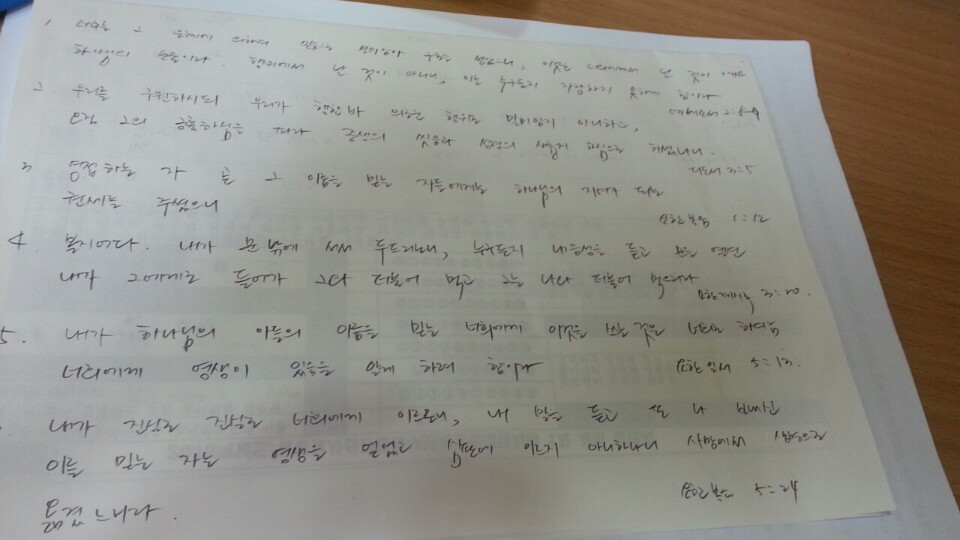 1. 너희는 그 은혜에 의하여 믿음으로 말미암아 구원을 받았으니, 이것은 너희에게서 난 것이 아니요
하나님의 선물이라. 행위에서 난 것이 아니니, 이는 누구든지 자랑하지 못하게 함이라
에베소서 2:8-9
2. 우리를 구원하시되 우리가 행한 바 의로운 행위로 말미암지 아니하고,
오직 그의 긍휼하심을 따라 중생의 씻음과 성령의 새롭게 하심으로 하셨나니.
디도서 3:5
3 영접하는 자 곧 그 이름을 믿는 자들에게는 하나님의 자녀가 되는
권세를 주셨으니
요한복음 1:12
4. 볼지어다. 내가 문 밖에 서서 두드리노니, 누구든지 내 음성을 듣고 문을 열면
내가 그에게로 들어가 그와 더불어 먹고 그는 나와 더불어 먹으리라
요한계시록 3:20.
5. 내가 하나님의 아들의 이름을 믿는 너희에게 이것을 쓰는 것은 너희로 하여금
너희에게 영생이 있음을 알게 하려 함이라
요한일서 5:13.
내가 진실로 진실로 너희에게 이르노니, 내 말을 듣고 또 나 보내신
이를 믿는 자는 영생을 얻었고 심판에 이르지 아니하나니 사망에서 생명으로
옮겼느니라.
요한복음 5:24